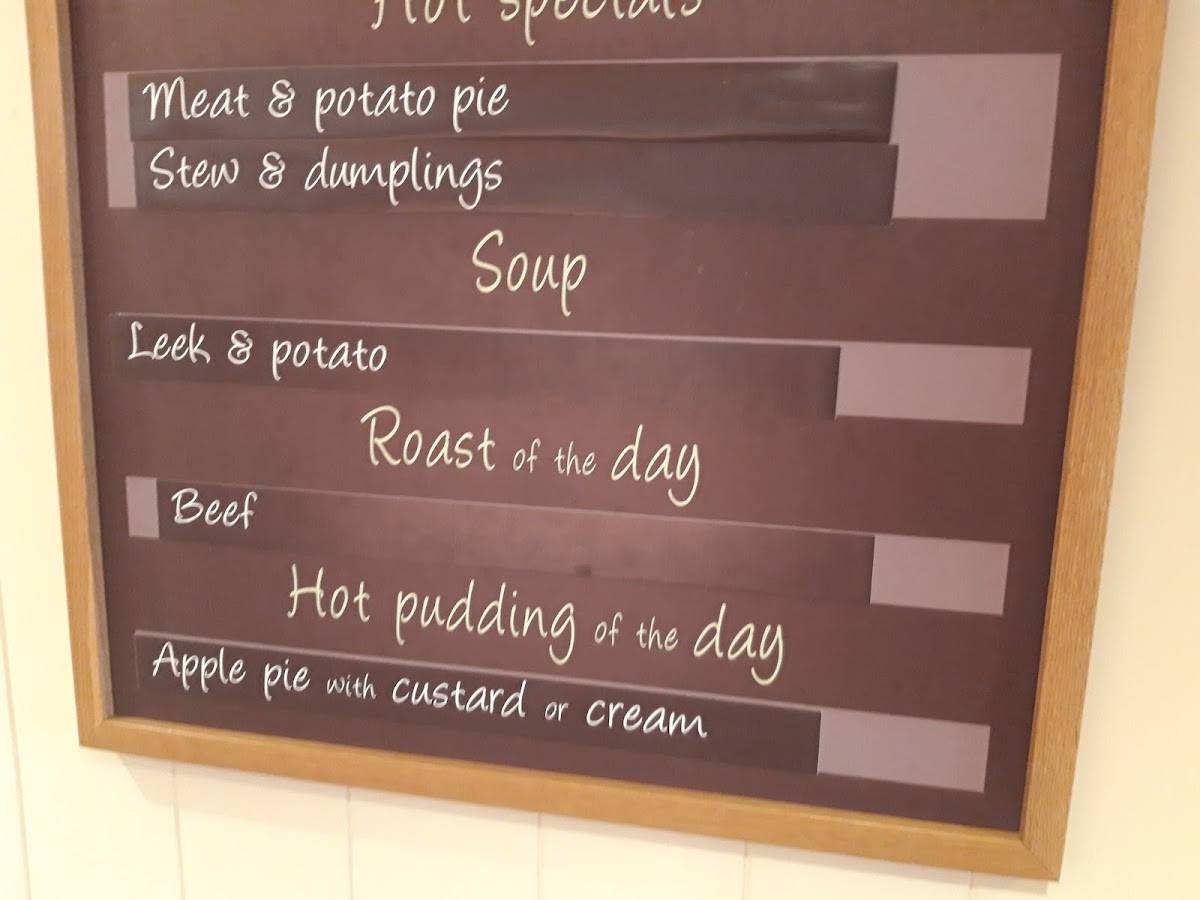 Hot specials
Meat & potato pie
Stew & dumplings
Soup
Leek & potato
Roast of the day
Beef
Hot pudding of the day
Apple pie with custard or cream